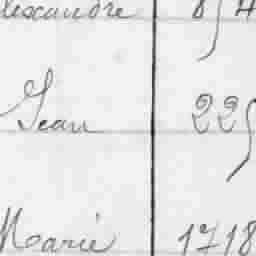 lexandre 8
Jean 22
Marie 1718